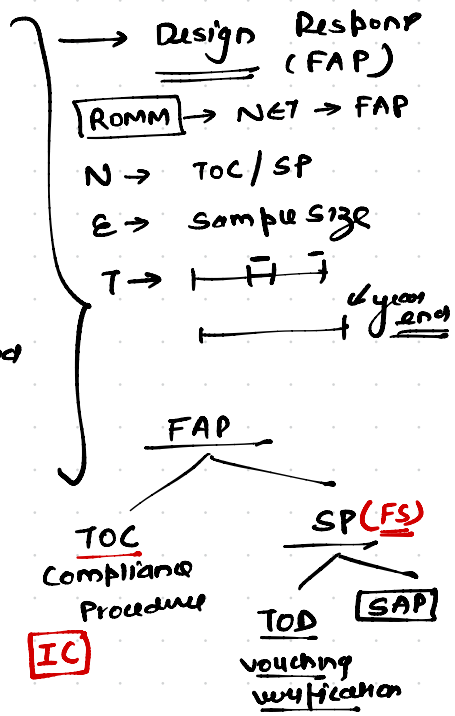 → Design Respons
(FAP)
ROMM → NET → FAP
N → TOC/SP
E → Sample Size
T →
year
end
FAP
TOC
SP (FS)
Compliance
Procedure
TOD
SAP
IC
vouching
verification